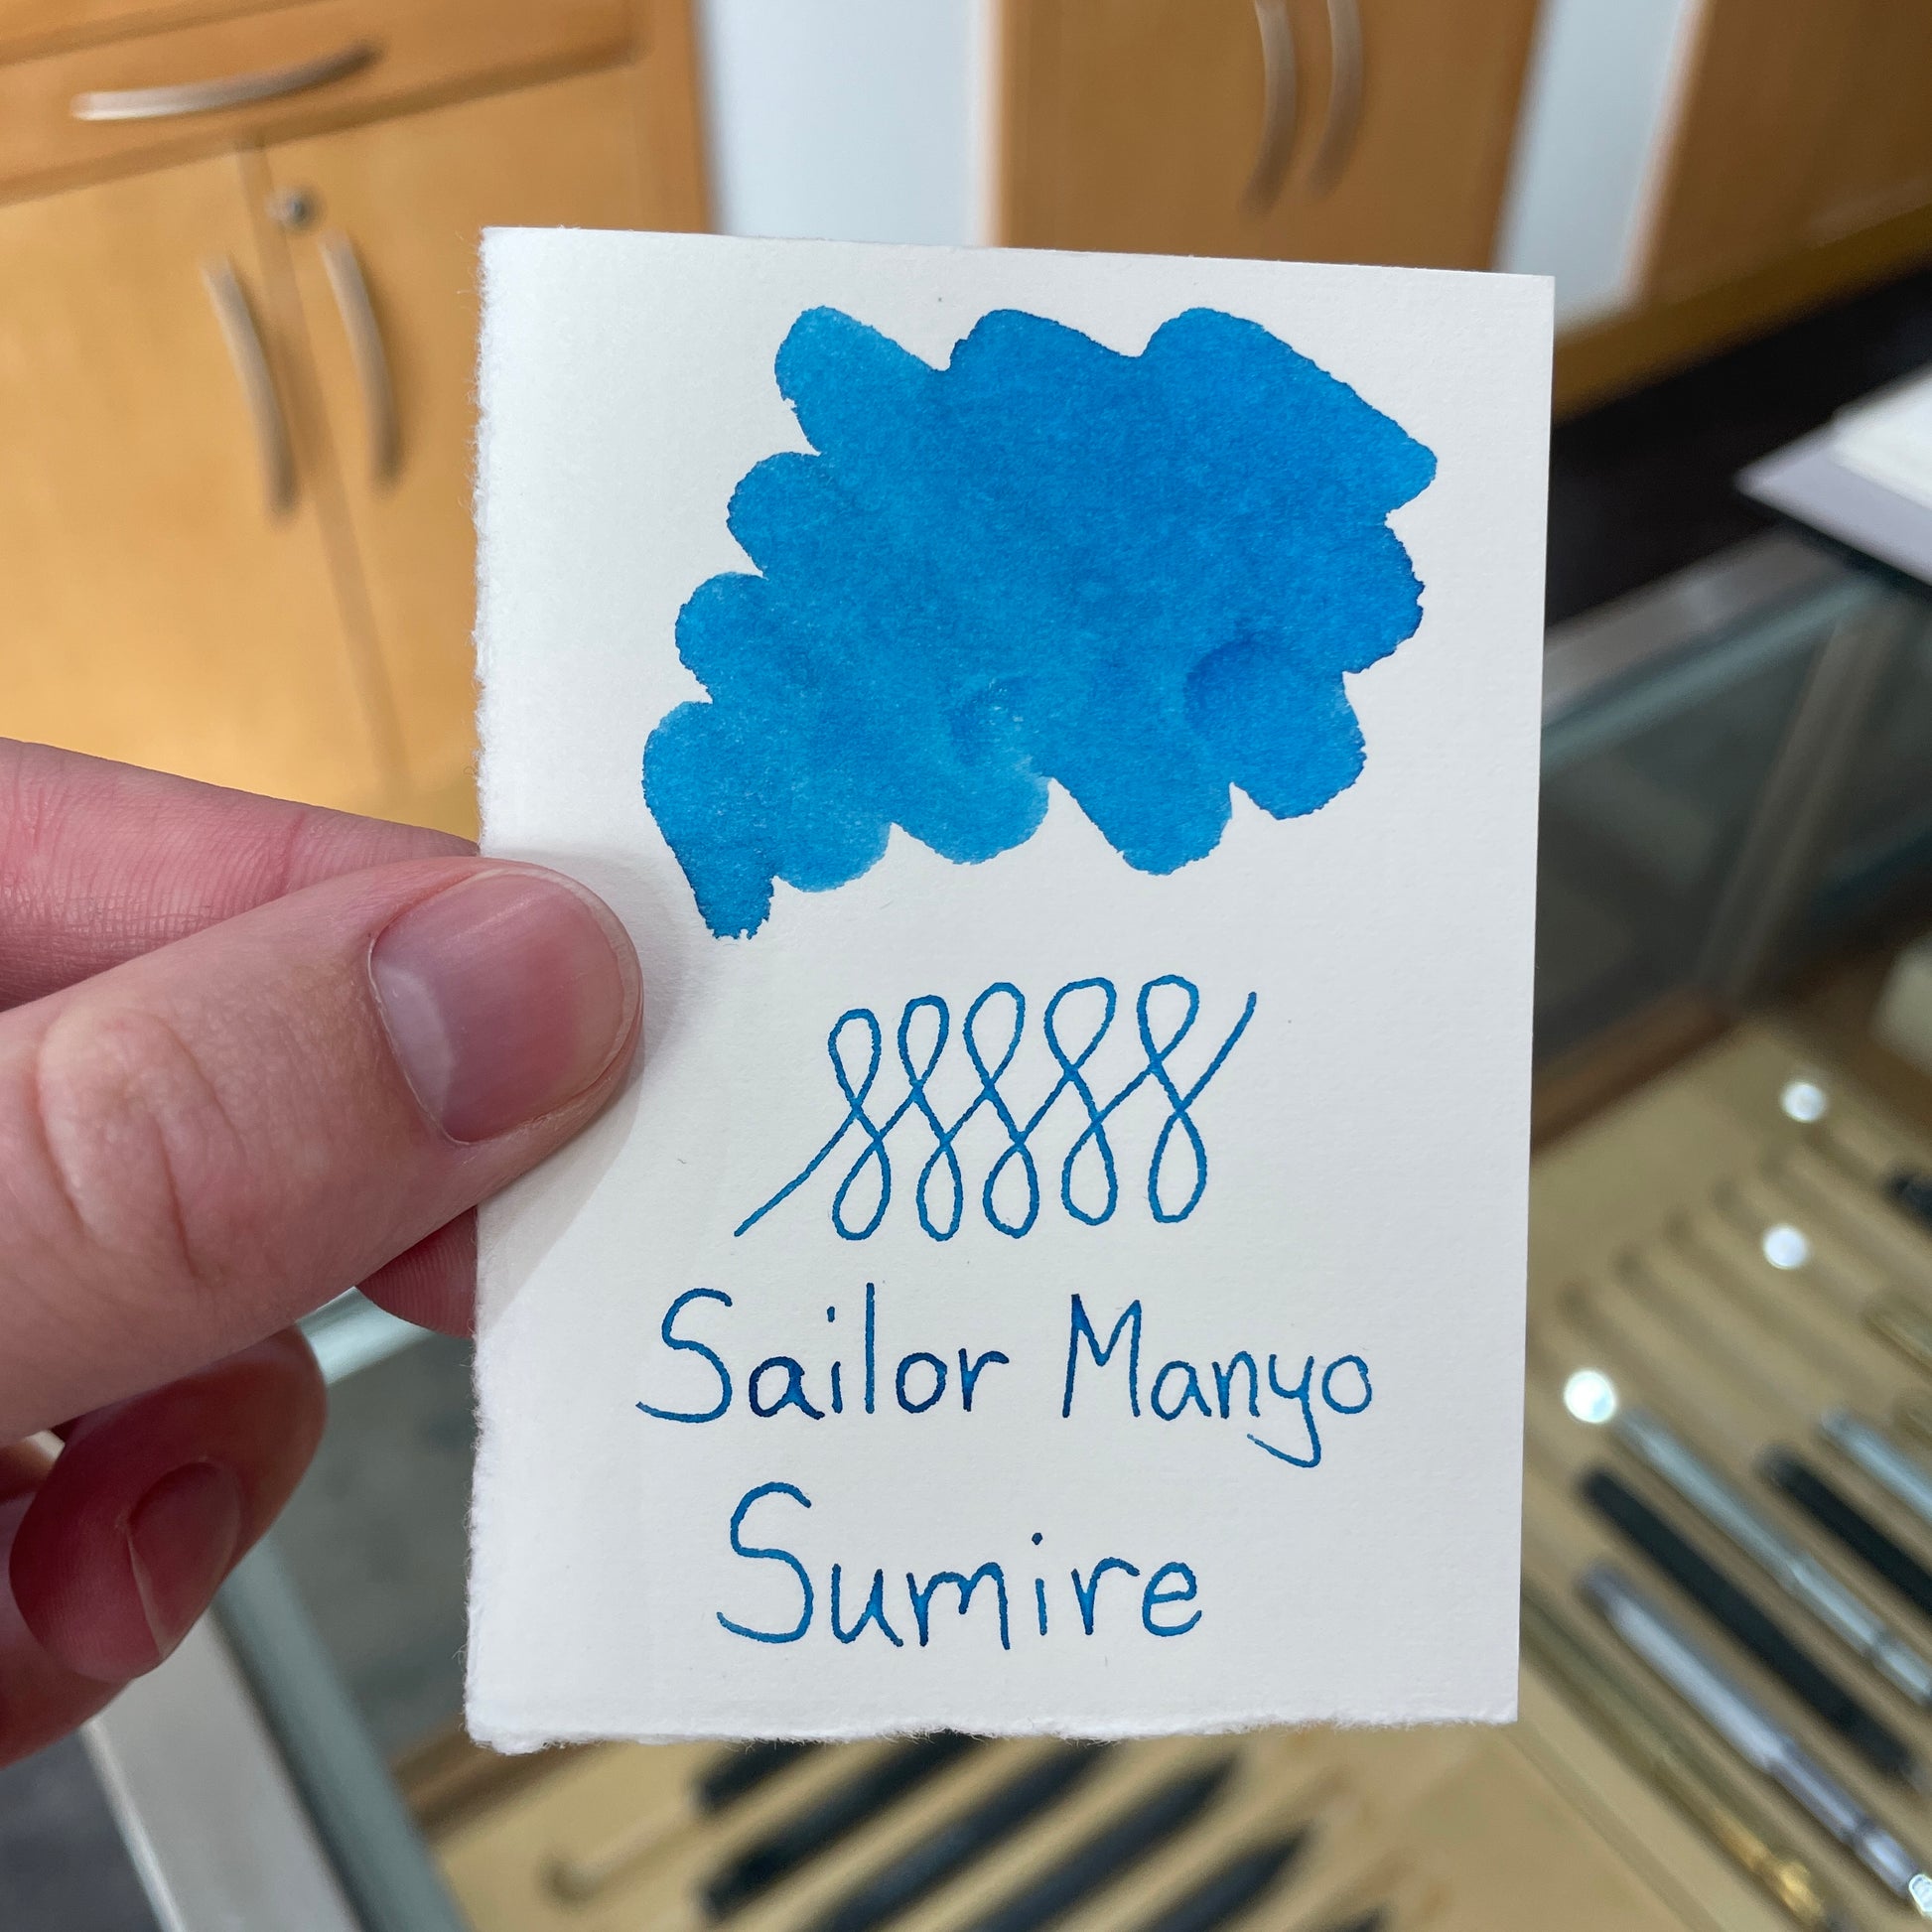 Sailor Manyo
Sumire